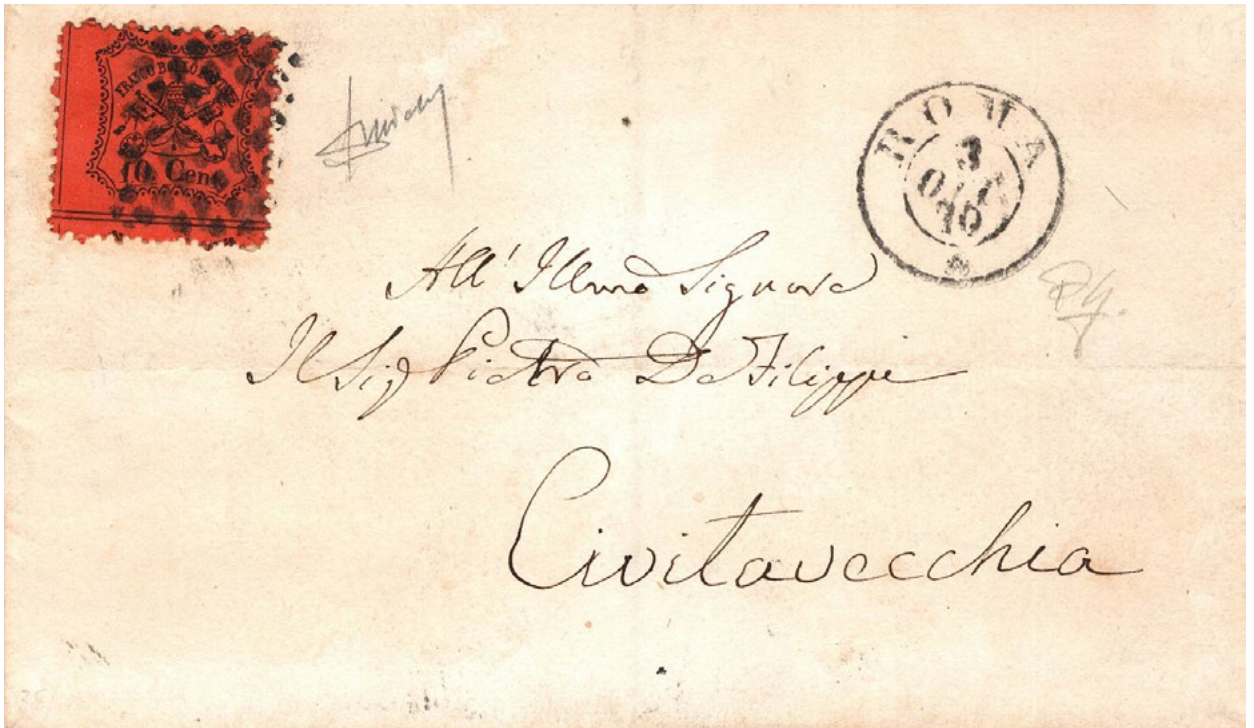 FRANCO BOLLO
10 Cent
ROMA
3
OTT
70
All' Illmo Signore
Il Sig Pietro De Filippi
Civitavecchia